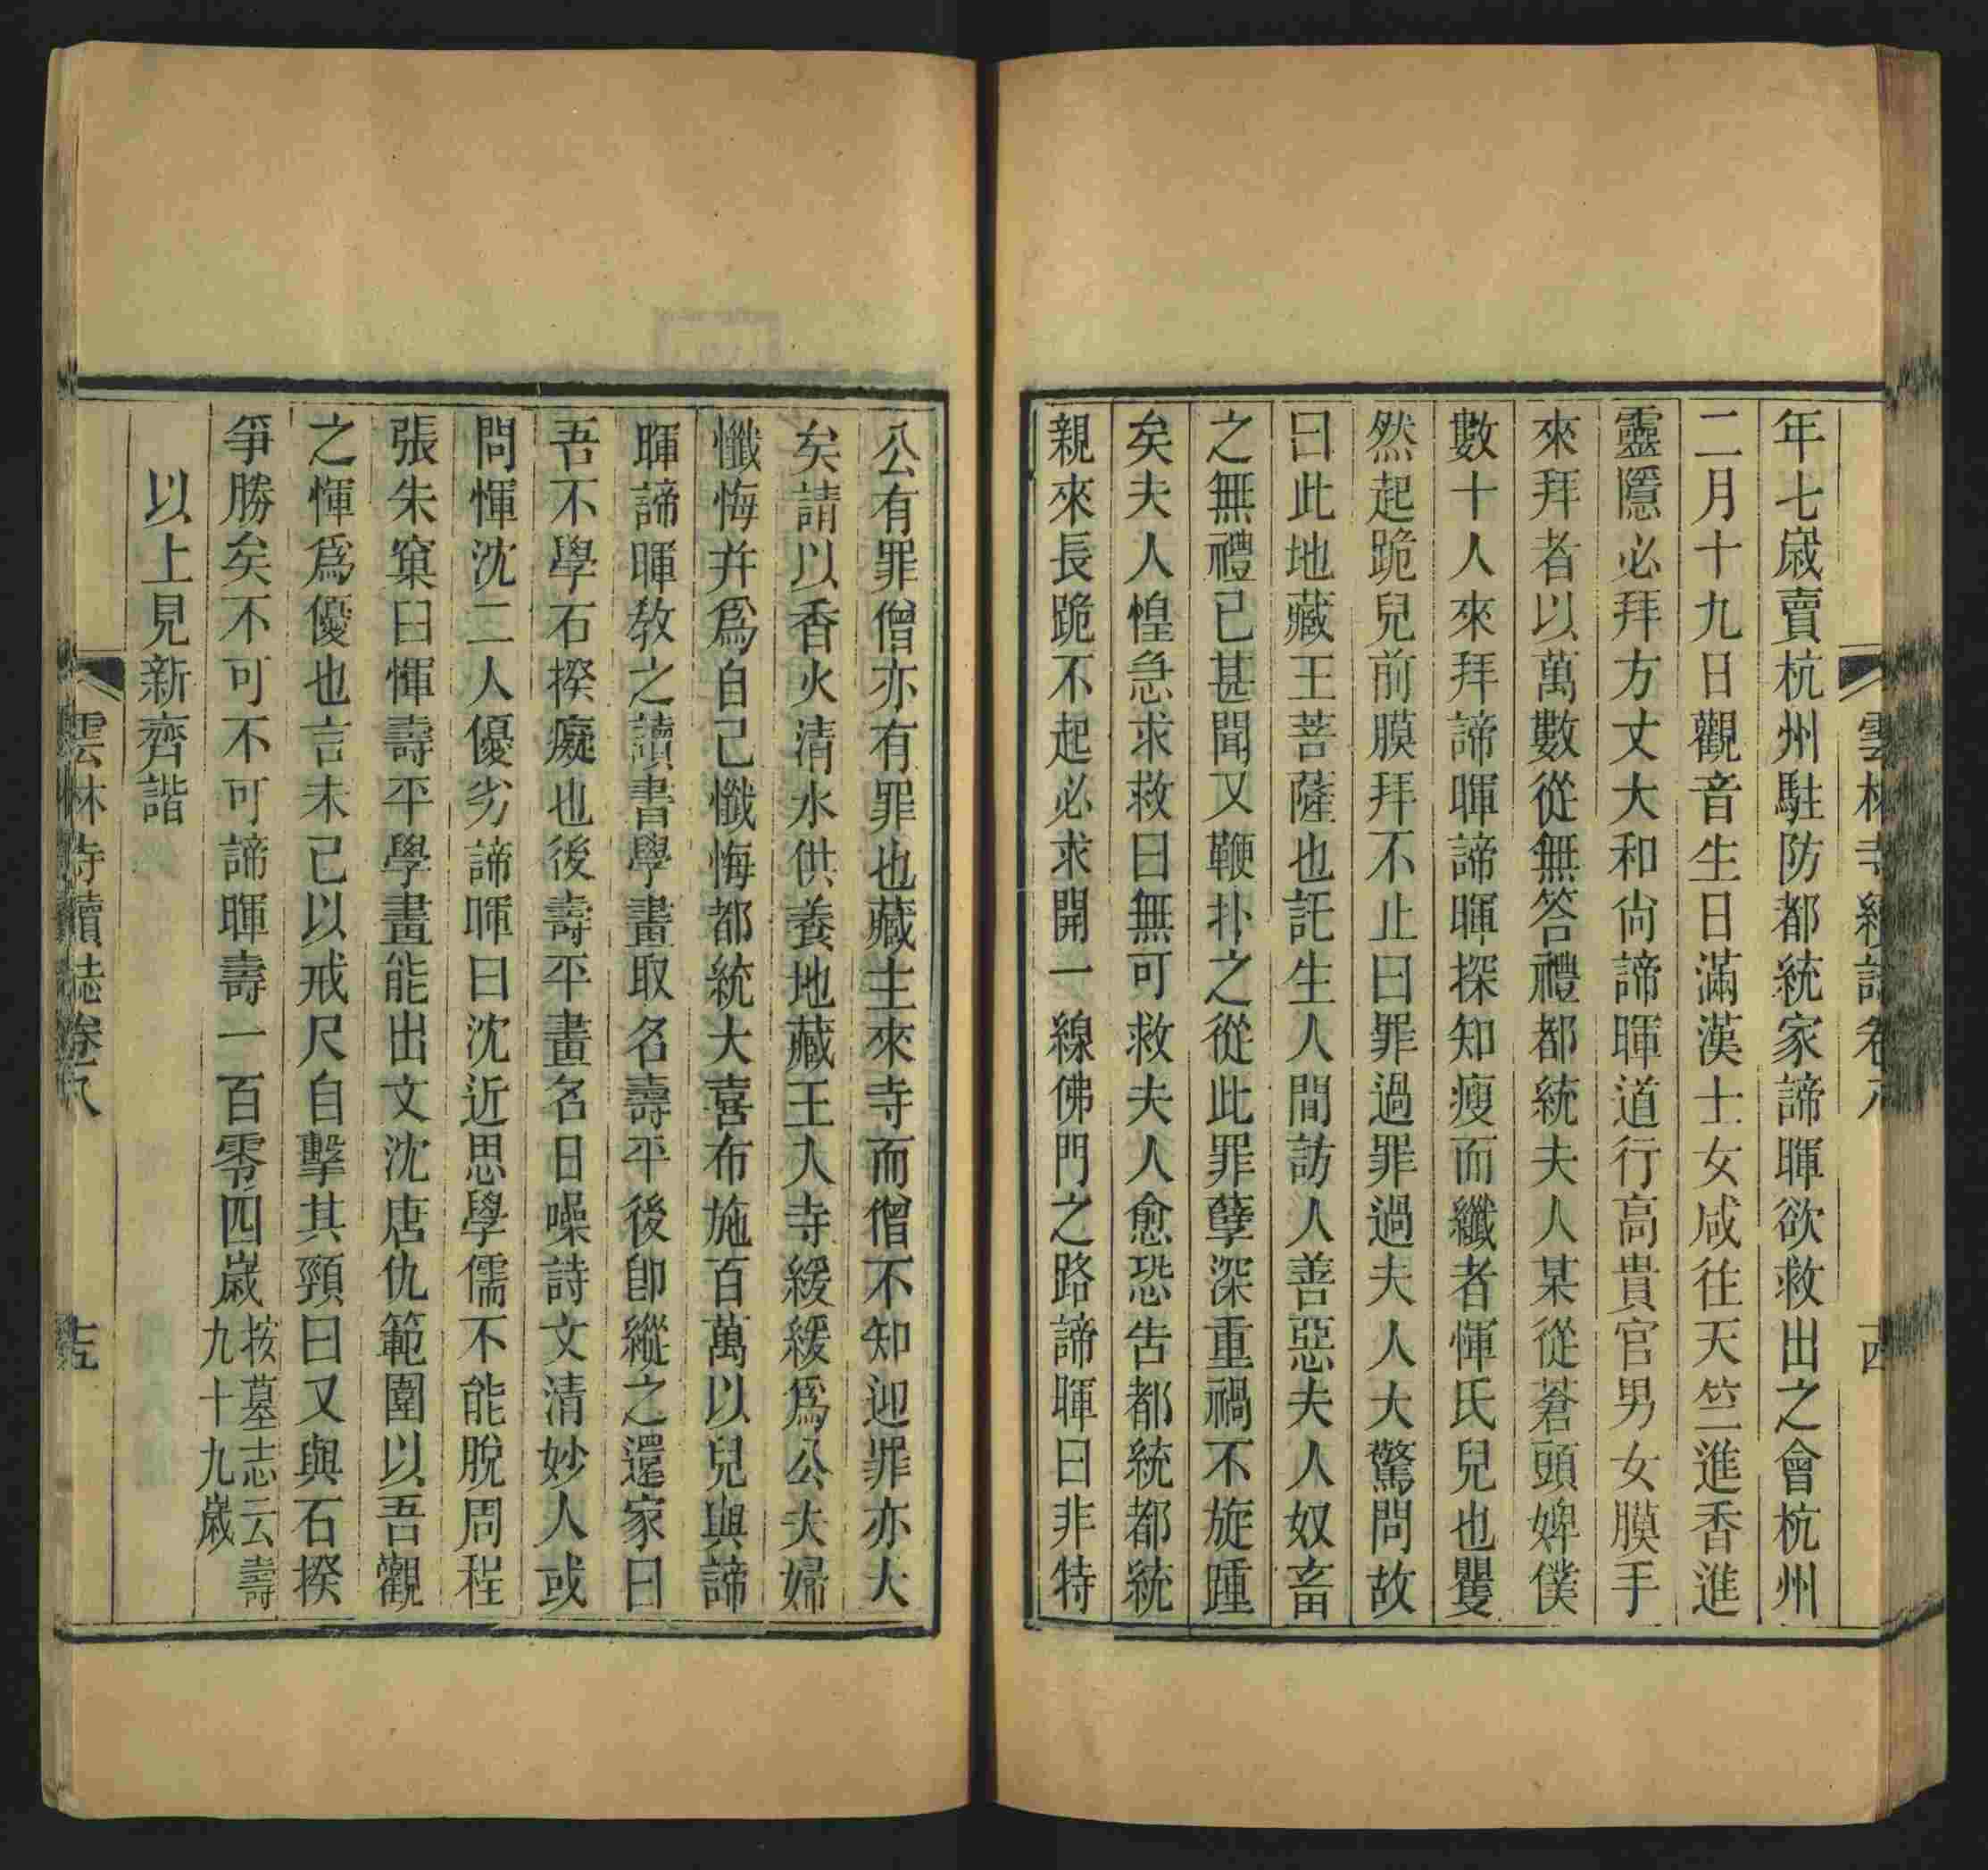 雲林寺續誌卷八 十四
年七歲賣杭州駐防都統家諦暉欲救出之會杭州
二月十九日觀音生日滿漢士女咸往天竺進香進
靈隱必拜方丈大和尙諦暉道行高貴官男女膜手
來拜者以萬數從無答禮都統夫人某從蒼頭婢僕
數十人來拜諦暉諦暉探知瘦而纖者惲氏兒也矍
然起跪兒前膜拜不止曰罪過罪過夫人大驚問故
曰此地藏王菩薩也託生人間訪人善惡夫人奴畜
之無禮已甚聞又鞭扑之從此罪孽深重禍不旋踵
矣夫人惶急求救曰無可救夫人愈恐告都統都統
親來長跪不起必求開一線佛門之路諦暉曰非特
公有罪僧亦有罪也藏主來寺而僧不知迎罪亦大
矣請以香火清水供養地藏王人寺緩緩爲公夫婦
懺悔幷爲自己懺悔都統大喜布施百萬以兒與諦
暉諦暉教之讀書學畫取名壽平後卽縱之還家曰
吾不學石揆癡也後壽平畫名日噪詩文清妙人或
問惲沈二人優劣諦暉曰沈近思學儒不能脫周程
張朱窠曰惲壽平學畫能出文沈唐仇範圍以吾觀
之惲爲優也言未已以戒尺自擊其頸曰又與石揆
爭勝矣不可不可諦暉壽一百零四歲按墓志云壽九十九歲
以上見新齊諧
雲林寺續誌卷八 十五